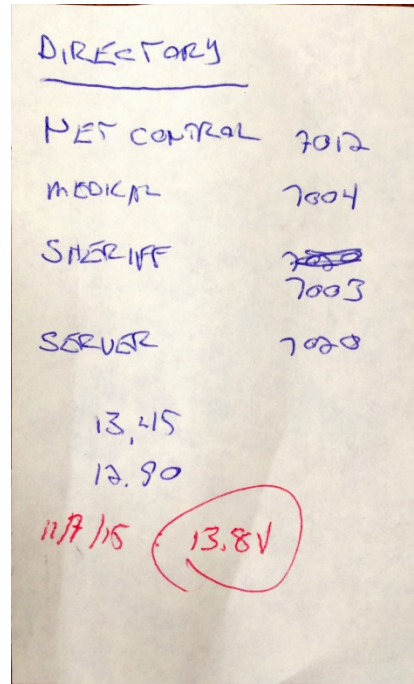 DIRECTORY
NET CONTROL 7012
MEDICAL 7004
SHERIFF
7003
SERVER 7020
13.45
12.90
13.8V